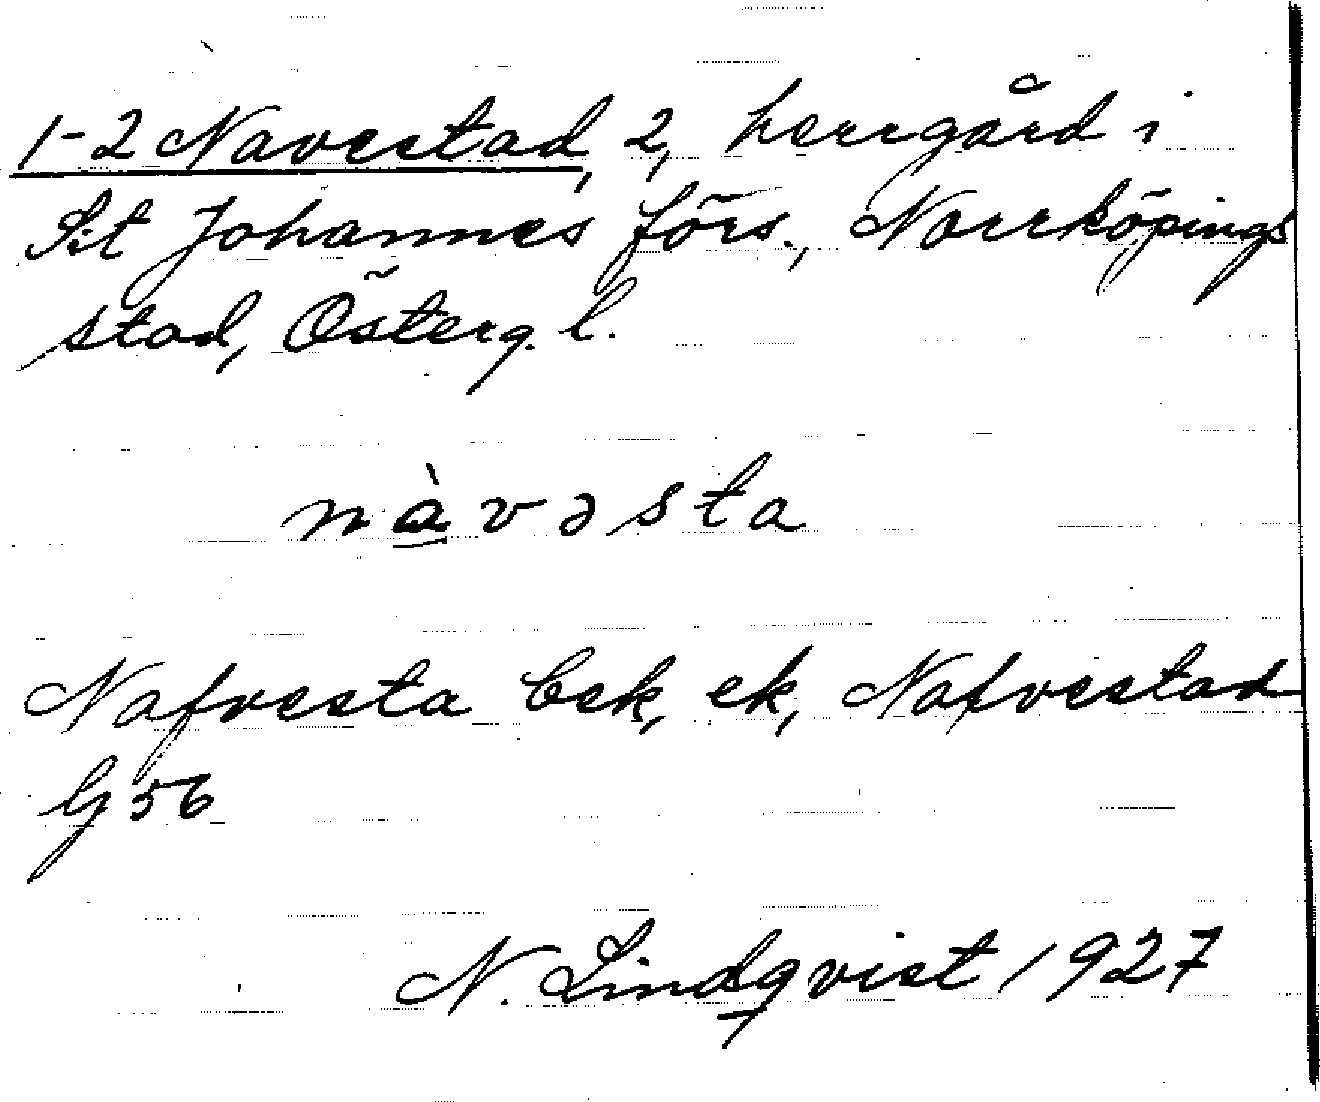 1-2 Navestad, 2, herrgård i
S:t Johannes förs., Norrköpings
stad, Österg. l.
nàvəsta
Nafvesta bek, ek, Nafvestad
G 56
N. Lindqvist 1927